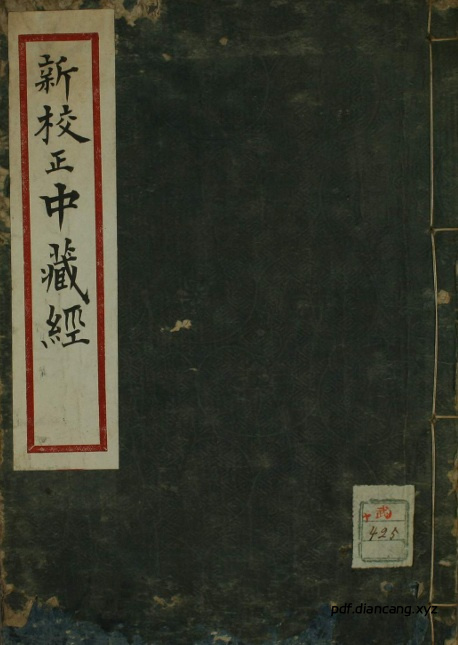 新校正中藏經
武
425
pdf.diancang.xyz